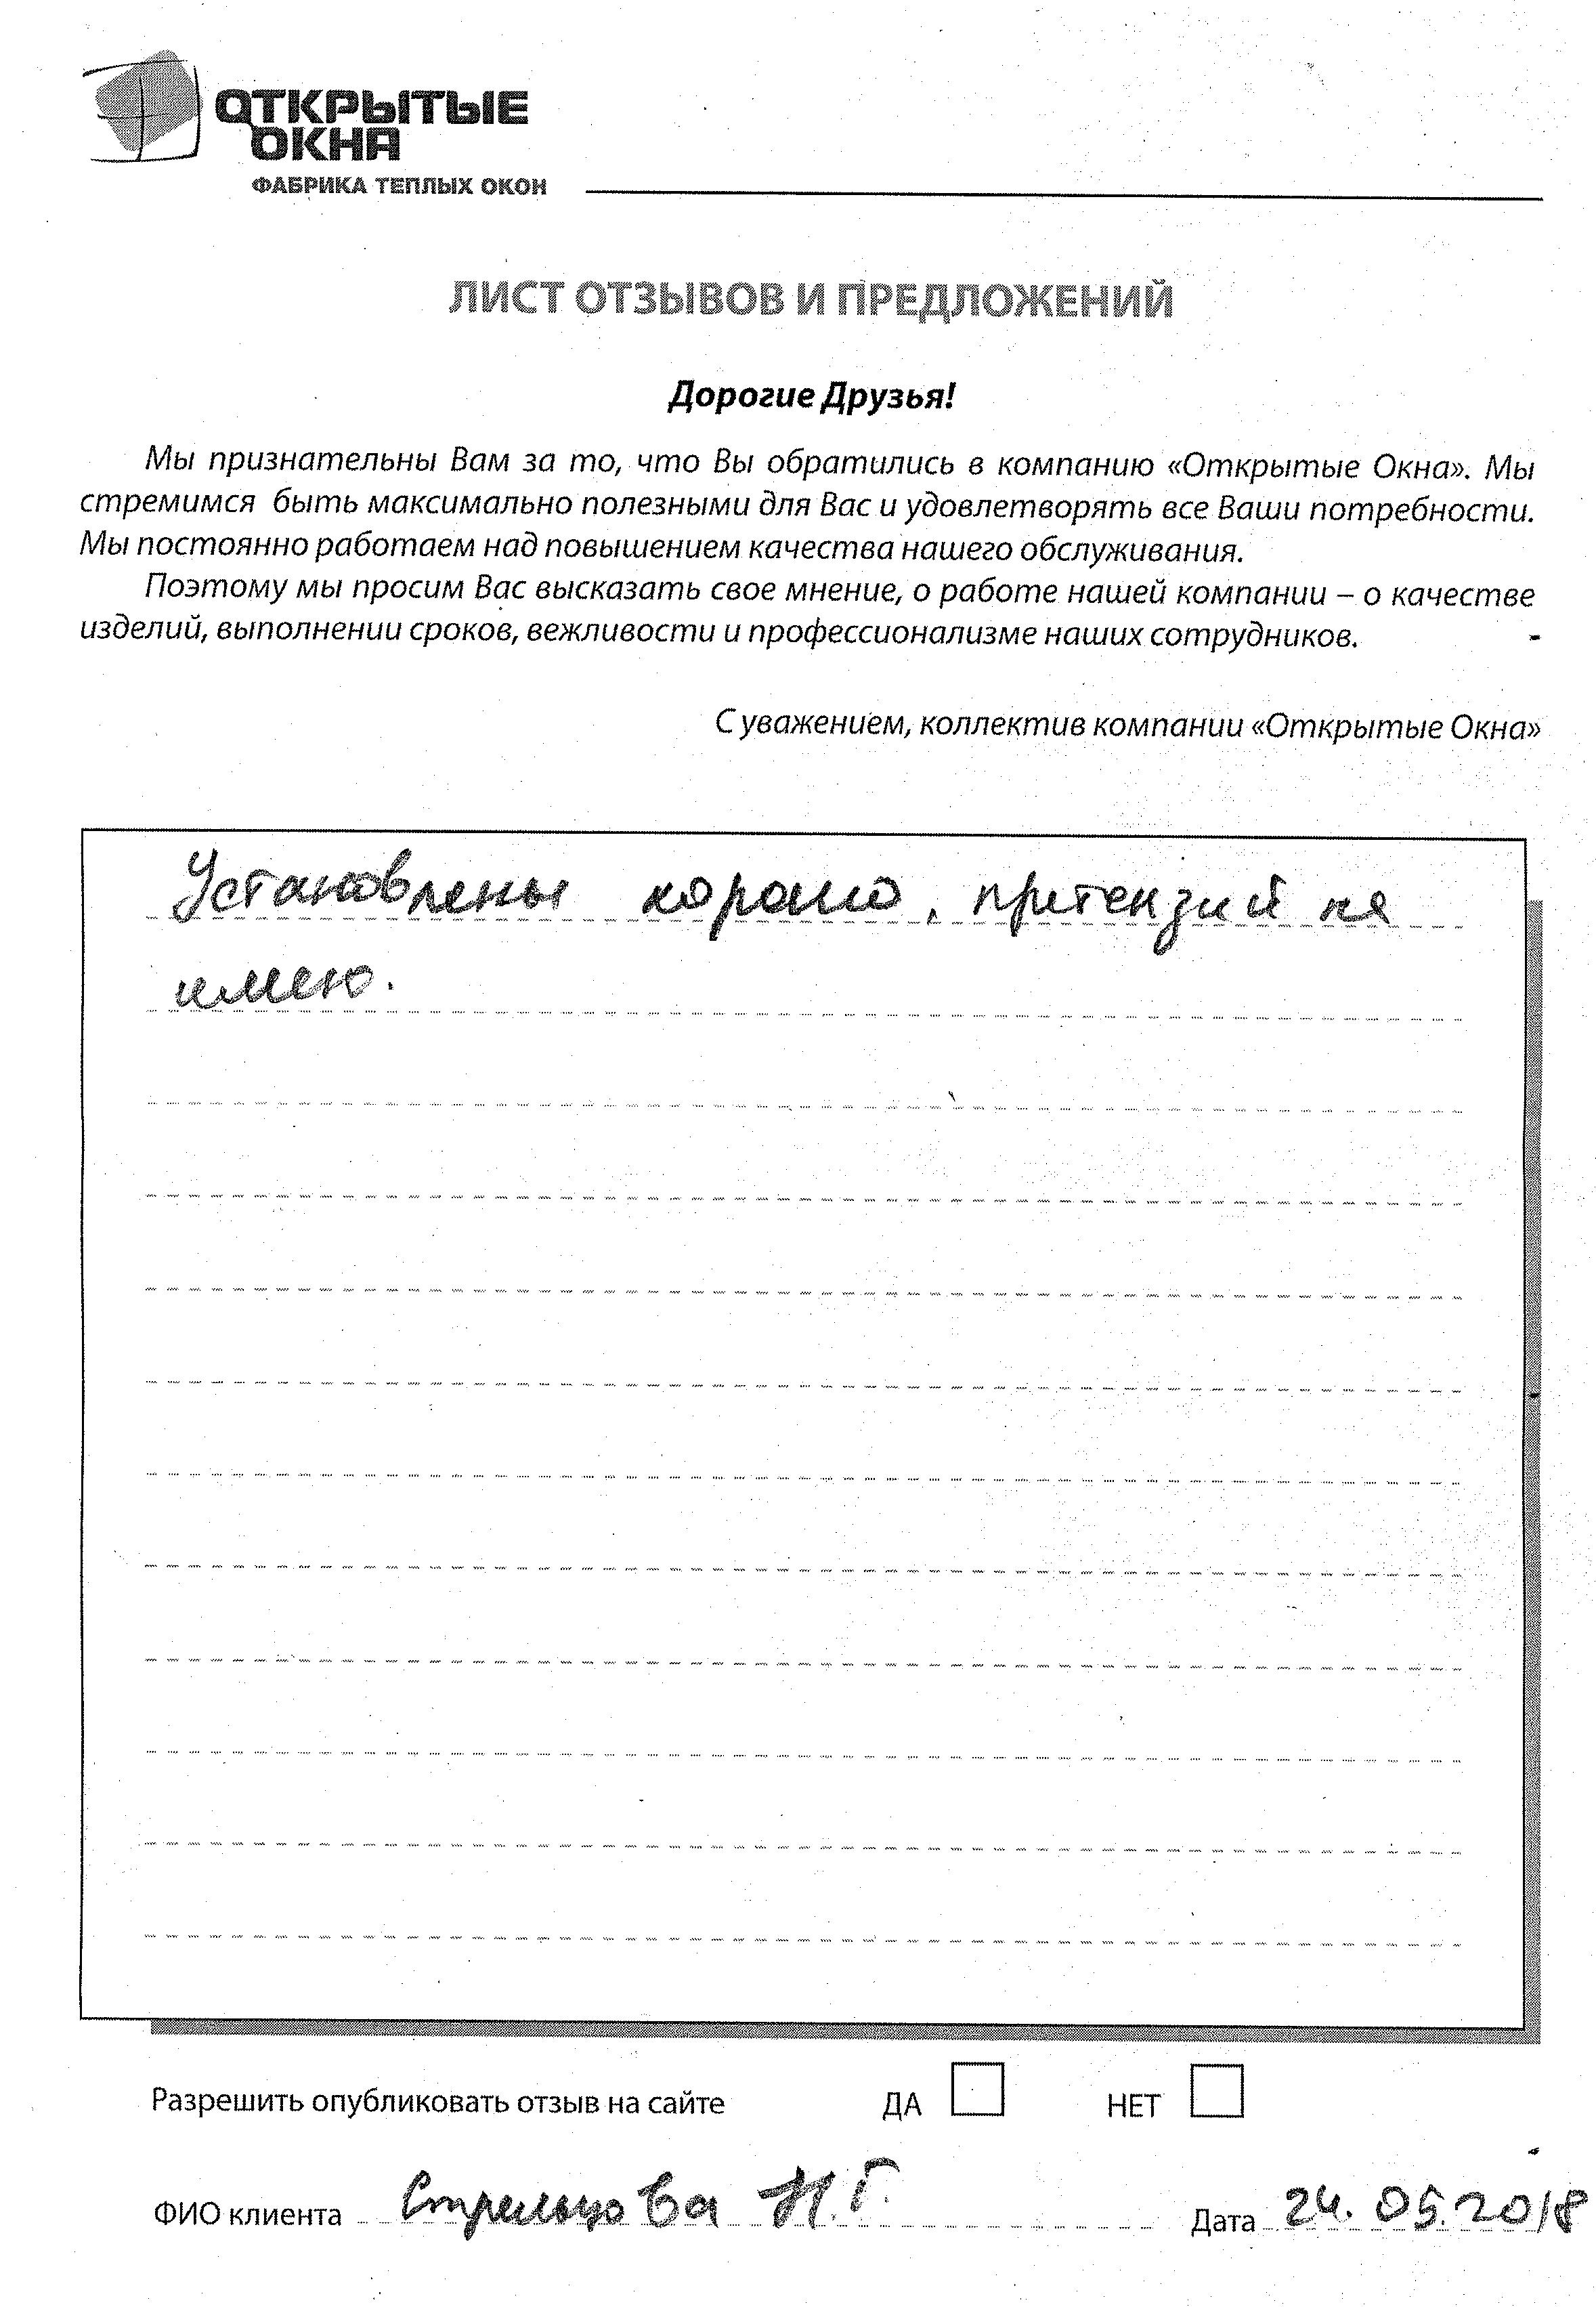 ОТКРЫТЫЕ
ОКНА
ФАБРИКА ТЕПЛЫХ ОКОН
ЛИСТ ОТЗЫВОВ И ПРЕДЛОЖЕНИЙ
Дорогие Друзья!
Мы признательны Вам за то, что Вы обратились в компанию «Открытые Окна». Мы
стремимся быть максимально полезными для Вас и удовлетворять все Ваши потребности.
Мы постоянно работаем над повышением качества нашего обслуживания.
Поэтому мы просим Вас высказать свое мнение, о работе нашей компании – о качестве
изделий, выполнении сроков, вежливости и профессионализме наших сотрудников.
С уважением, коллектив компании «Открытые Окна»
Установлены хорошо, притензий не
имею.
Разрешить опубликовать отзыв на сайте ДА НЕТ
ФИО клиента Стрельцова Н.Г. Дата 24.05.2018